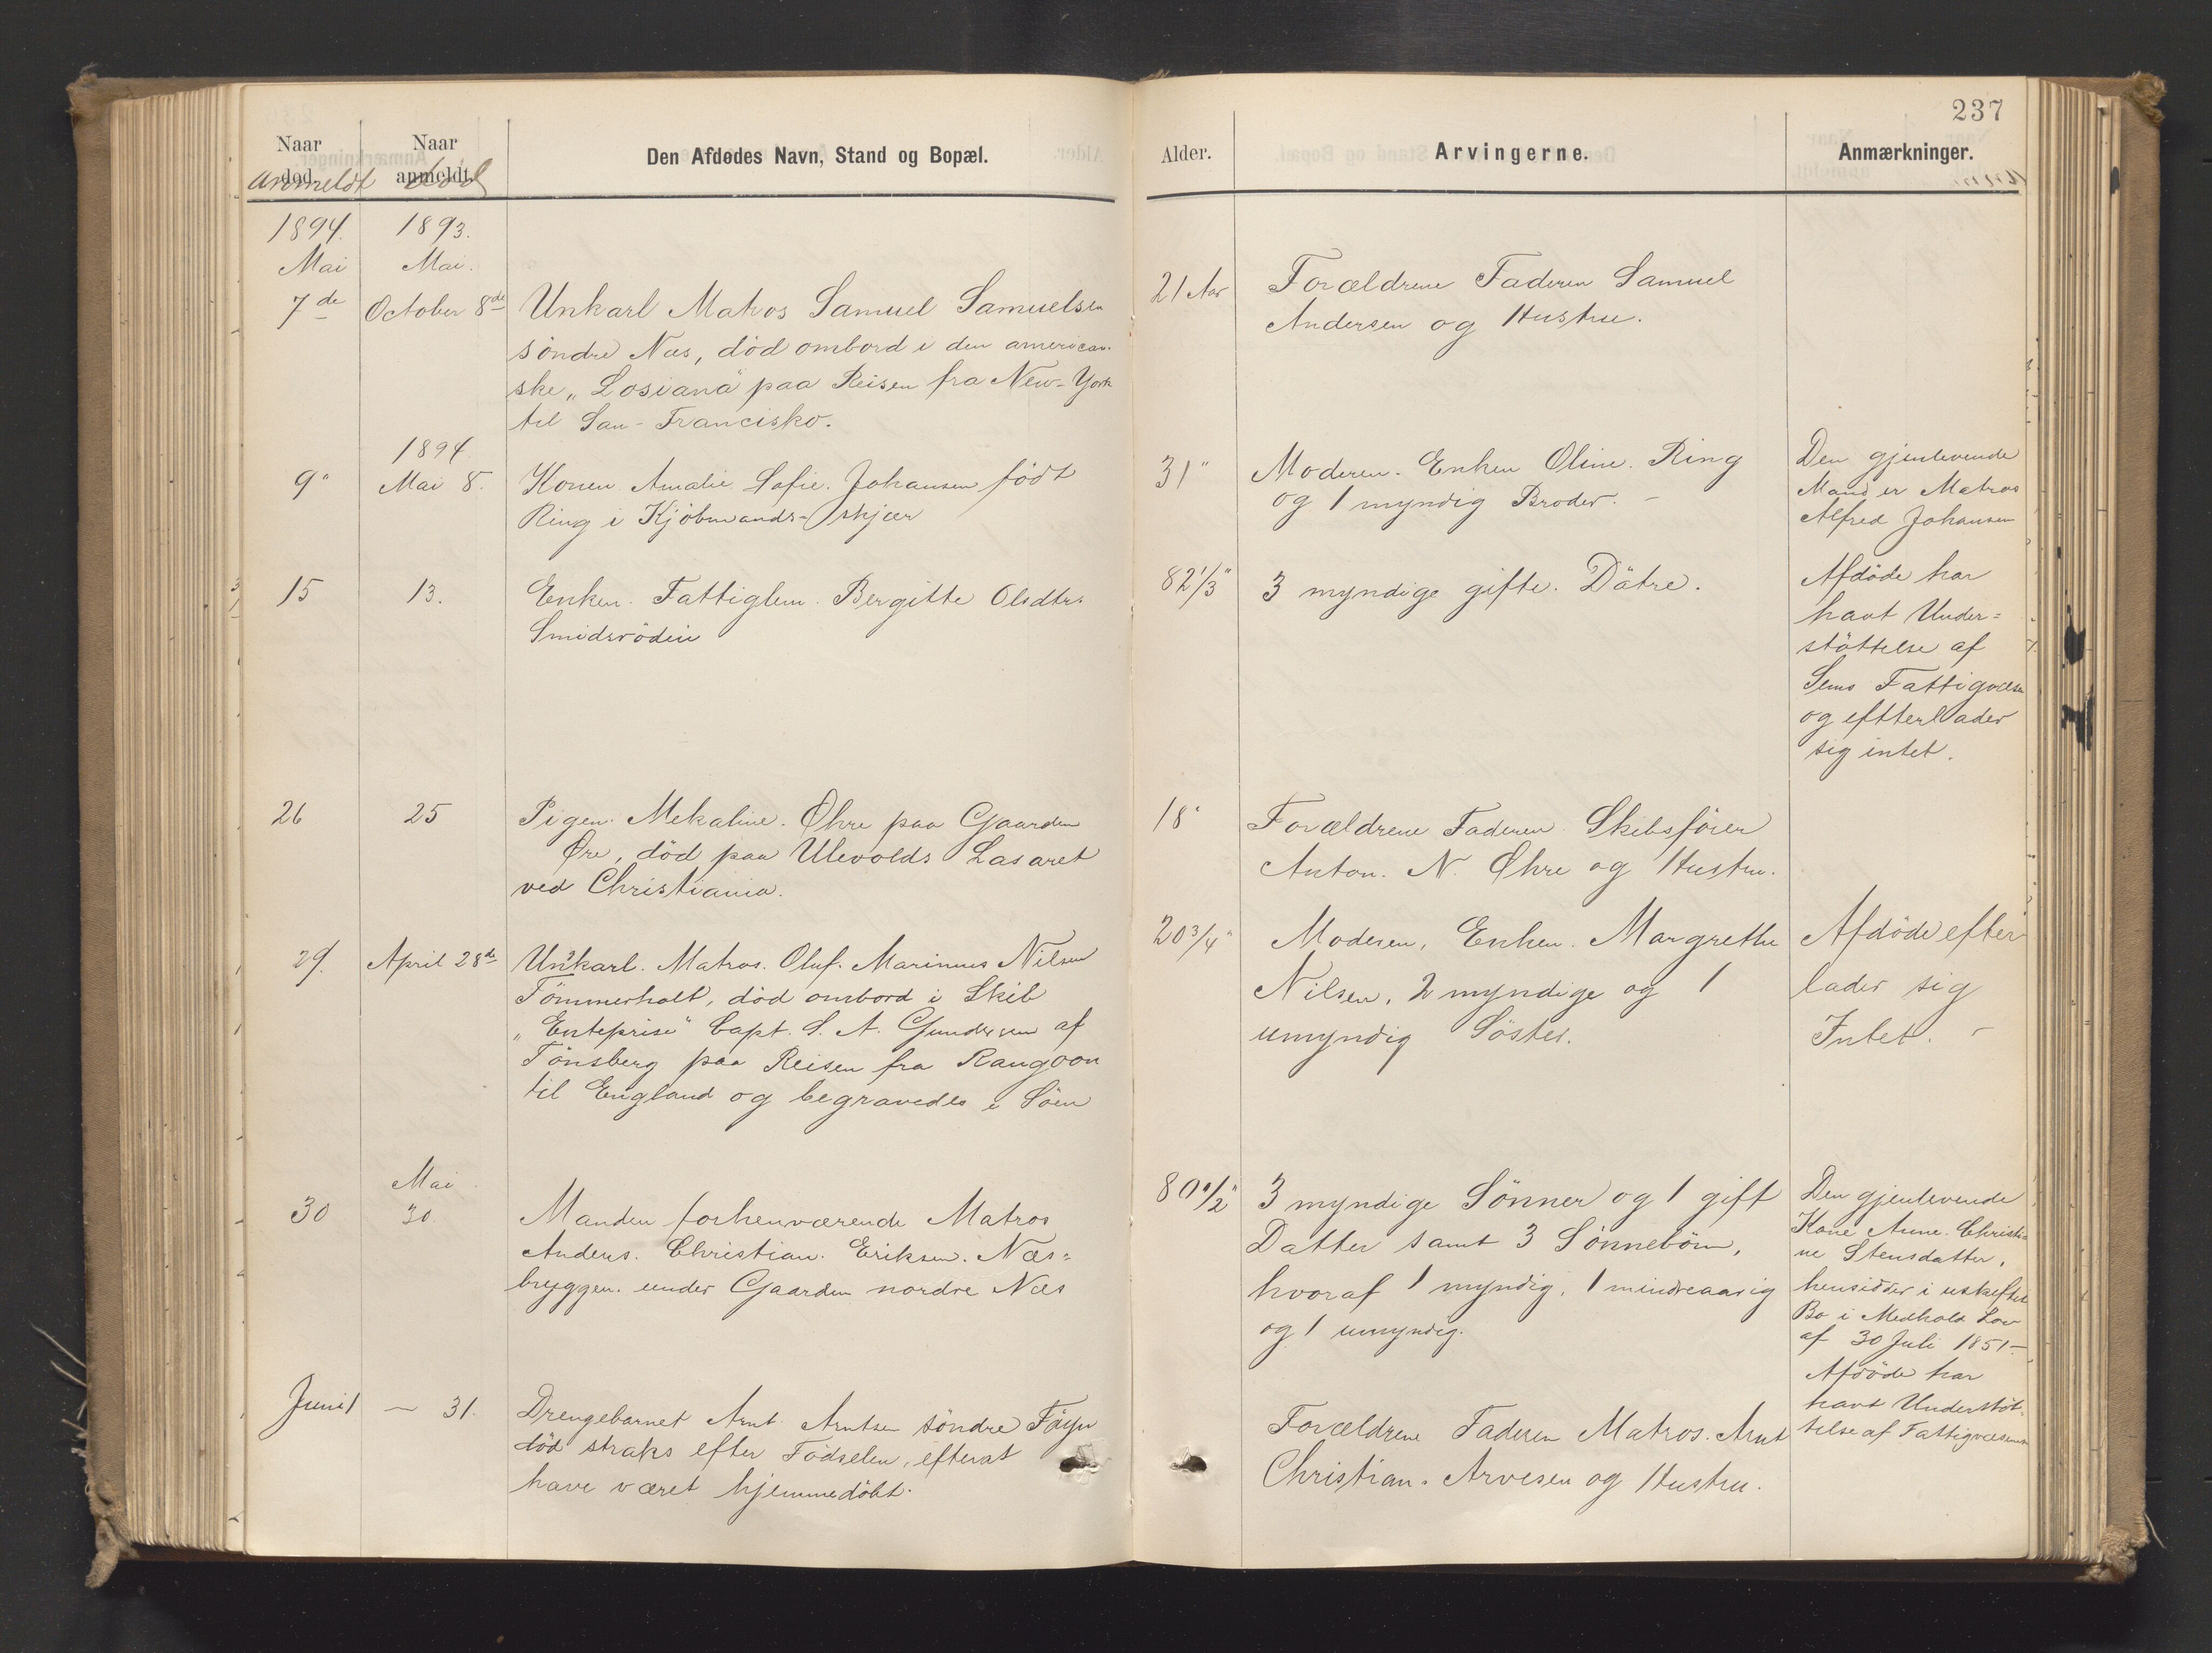 237
Naar død. Naar anmeldt. Den Afdødes Navn, Stand og Bopæl. Alder. Arvingerne. Anmærkninger.
anmeldt død
1894. 1893.
Mai Mai.
7de October 8de Unkarl Matros Samuel Samuelsen
söndre Næs, död ombord i den american-
ske „Losiana" paa Reisen fra New-York
til San-Francisko.
21 Aar Forældrene Faderen Samuel
Andersen og Hustru.
1894
9" Mai 8. Konen Amalie Sofie. Johansen födt
Ring i Kjöbmands-skjær
31" Moderen. Enken Oline. Ring
og 1 myndig Broder. -
Den gjenlevende
Mand er Matros
Alfred Johansen
15 13. Enken. Fattiglem. Bergitte Olsdtr.
Smidsrödin
82 1/3" 3 myndige gifte. Dötre.
Afdöde har
havt Under=
stöttelse af
Sems Fattigvæsen
og efterlader
sig intet.
26 25 Pigen. Mekaline. Øhre paa Gaarden
Øre, död paa Ulevolds Lasaret
ved Christiania.
18" Forældrene Faderen Skibsförer
Anton. N. Øhre og Hustru.
29. April 28de Unkarl. Matros. Oluf. Marinius Nilsen
Tömmerholt, död ombord i Skib
„Enteprise" Capt. S. A. Gundersen af
Tönsberg paa Reisen fra Rangoon
til England og begravedes i Söen
20 3/4" Moderen, Enken. Margrethe
Nilsen, 2 myndige og 1
umyndig Söster.
Afdöde efter
lader sig
Intet. -
Mai
30 30. Manden forhenværende Matros
Anders. Christian. Eriksen. Næs=
bryggen. under Gaarden nordre Næs
80 1/2" 3 myndige Sönner og 1 gift
Datter samt 3 Sönnebörn,
hvoraf 1 myndig, 1 mindreaarig
og 1 umyndig.
Den gjenlevende
Kone Anne. Christi-
ne Stensdatter,
hensidder i uskiftet
Bo i Medhold Lov
af 30 Juli 1851-
Afdöde har
havt Understöt-
telse af Fattigvæsenet
Juni 1 — 31. Drengebarnet Arnt Arntsen söndre Föyn
död straks efter Födselen, efterat
have været hjemmedöbt.
Forældrene Faderen Matros. Arnt
Christian. Arvesen og Hustru.